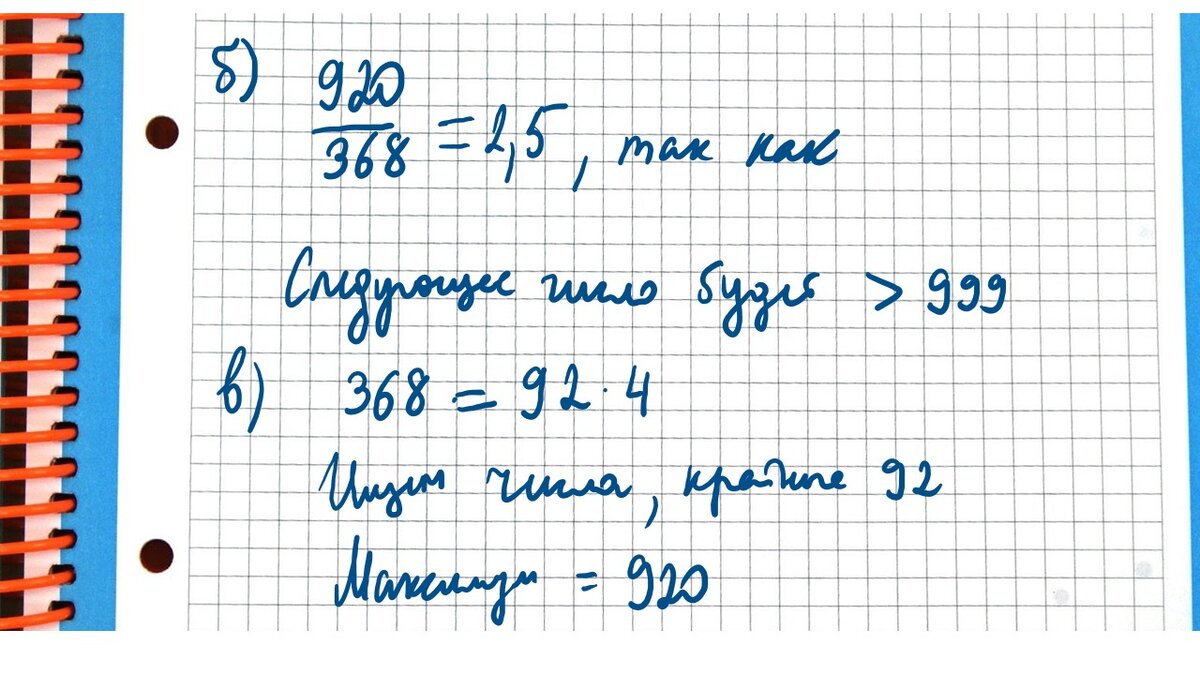 б) 920/368 = 2,5, так как
Следующее число будет > 999
в) 368 = 92 · 4
Ищем числа, кратные 92
Максимум = 920